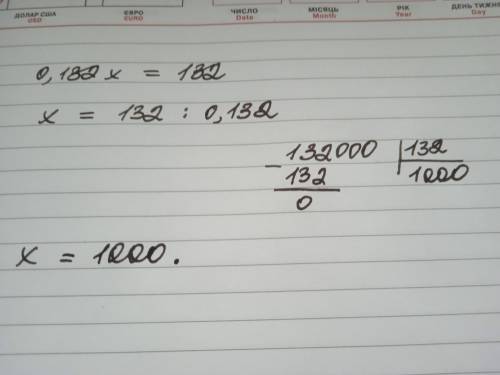 ДОЛАР США ЄВРО ЧИСЛО МІСЯЦЬ РІК ДЕНЬ ТИЖНЯ
USD EURO Date Month Year Day
0,132x = 132
x = 132 : 0,132
- 132000 | 132
132 1000
0
x = 1000.